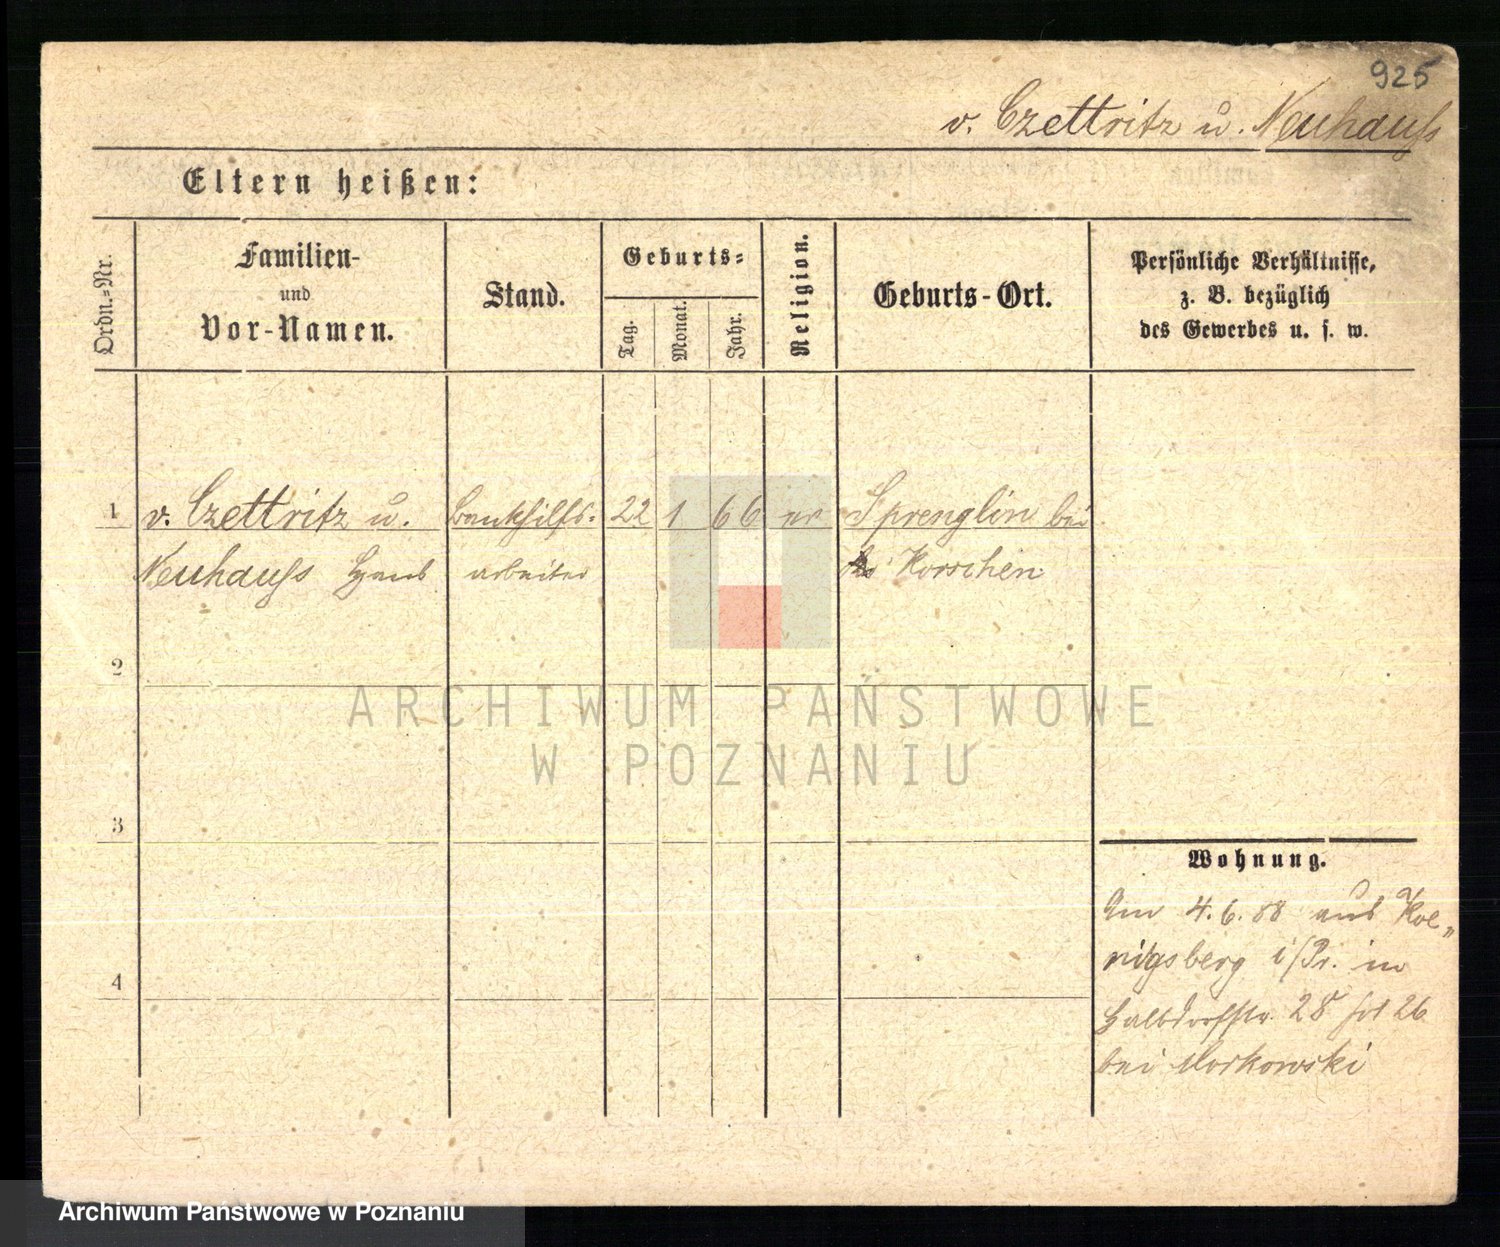 925
v. Czettritz u. Neuhauß
Eltern heißen:
Ordn.-Nr.
Familien-
und
Vor-Namen.
Stand.
Geburts-
Tag.
Monat.
Jahr.
Religion.
Geburts-Ort.
Persönliche Verhältnisse,
z. B. bezüglich
des Gewerbes u. s. w.
1 v. Czettritz u. Bankhilfs- 22 1 66 ev Sprenglin bei
Neuhauß Hans arbeiter Korschen
2
3
4
Wohnung.
Am 4.6.88 aus Koe„
nigsberg i/Pr. in
Halbdorfstr. 28 fol 26
bei Morkowski
ARCHIWUM PAŃSTWOWE
W POZNANIU
Archiwum Państwowe w Poznaniu